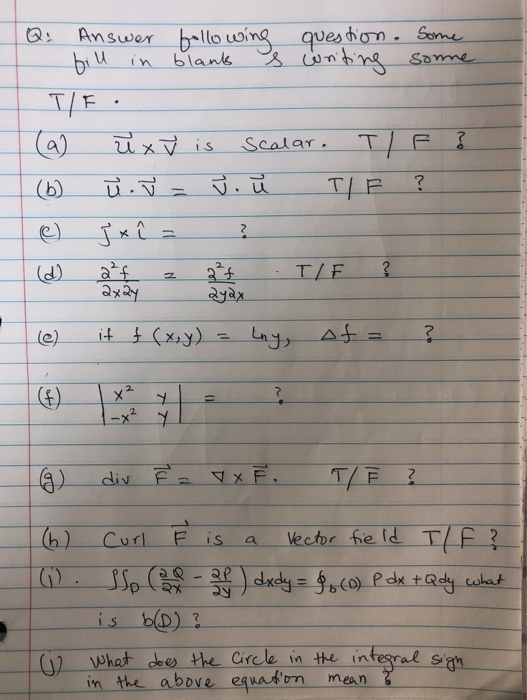 Q: Answer following question. Some
fill in blanks & writing some
T/F.
(a) u⃗ × v⃗ is Scalar. T/F ?
(b) u⃗ . v⃗ = v⃗ . u⃗ T/F ?
(c) ĵ × î = ?
(d) ∂²f/∂x∂y = ∂²f/∂y∂x . T/F ?
(e) if f(x,y) = lny, Δf = ?
(f) | x² y ; -x² y | = ?
(g) div F⃗ = ∇ × F⃗. T/F ?
(h) Curl F⃗ is a Vector field T/F ?
(i). ∬_D (∂Q/∂x - ∂P/∂y) dxdy = ∮_b(D) Pdx + Qdy what
is b(D) ?
(j) What does the Circle in the integral sign
in the above equation mean ?